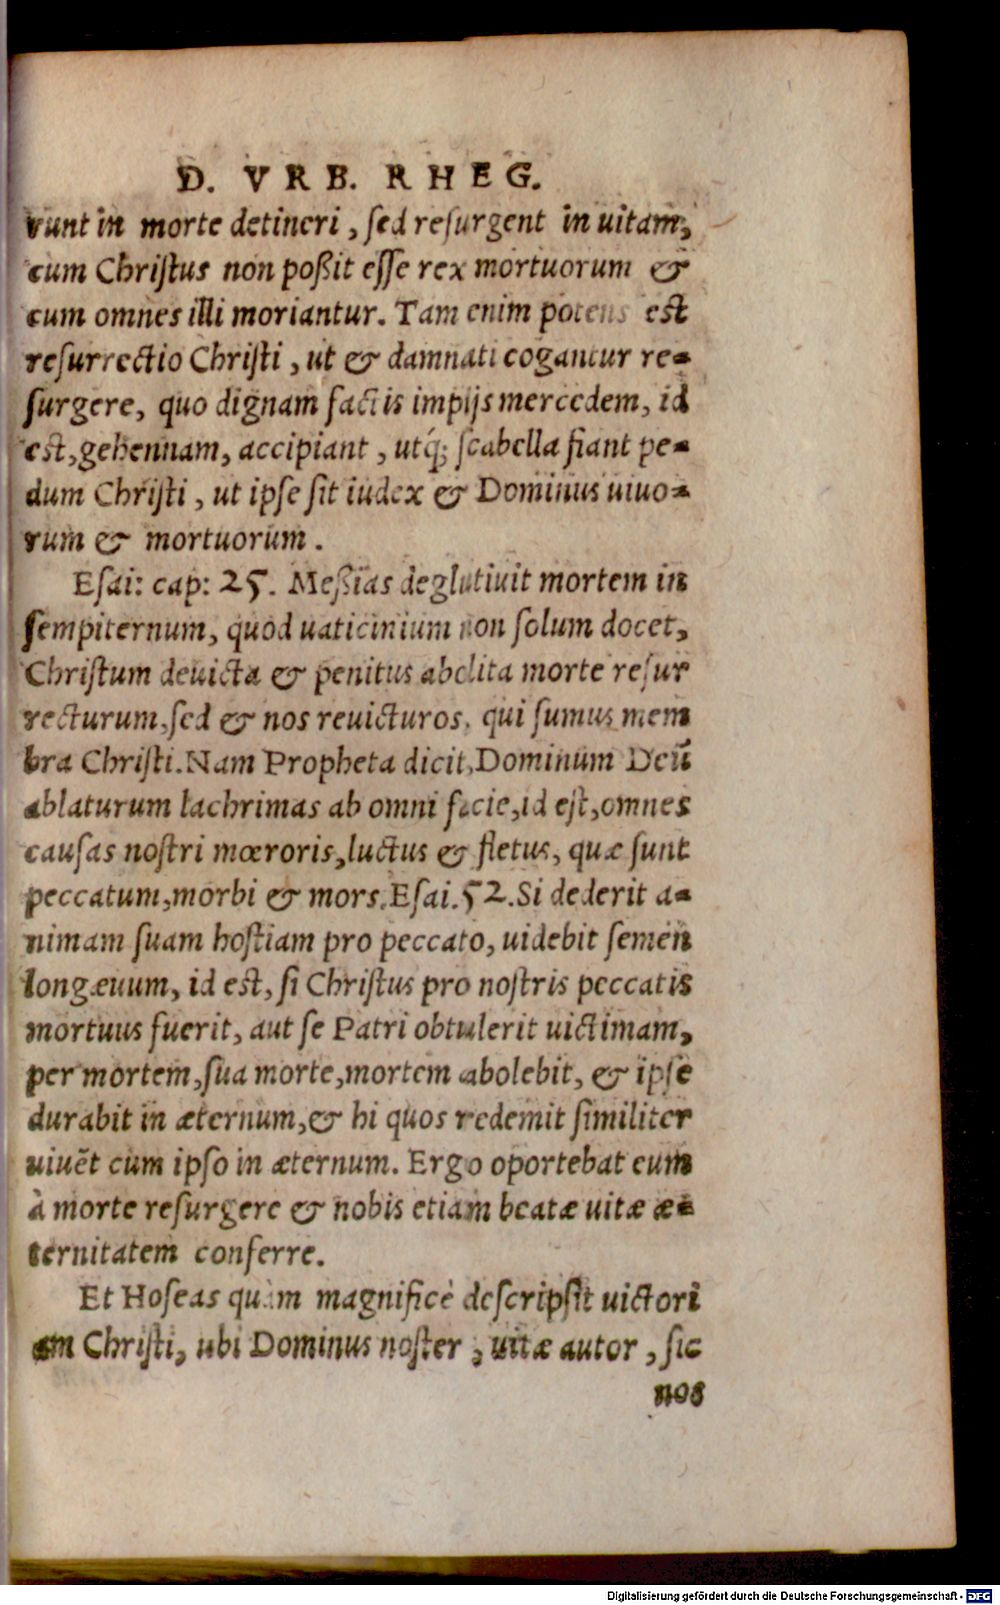 D. VRB. RHEG.
runt in morte detineri, sed resurgent in uitam,
cum Christus non poßit esse rex mortuorum &
cum omnes illi moriantur. Tam enim potens est
resurrectio Christi, ut & damnati cogantur re-
surgere, quo dignam factis impijs mercedem, id
est, gehennam, accipiant, utq́; scabella fiant pe-
dum Christi, ut ipse sit iudex & Dominus uiuo-
rum & mortuorum.
Esai: cap: 25. Meßias deglutiuit mortem in
sempiternum, quod uaticinium non solum docet,
Christum deuicta & penitus abolita morte resur
recturum, sed & nos reuicturos, qui sumus mem
bra Christi. Nam Propheta dicit, Dominum Deū
ablaturum lachrimas ab omni facie, id est, omnes
causas nostri mœroris, luctus & fletus, quæ sunt
peccatum, morbi & mors. Esai. 52. Si dederit a-
nimam suam hostiam pro peccato, uidebit semen
longæuum, id est, si Christus pro nostris peccatis
mortuus fuerit, aut se Patri obtulerit uictimam,
per mortem, sua morte, mortem abolebit, & ipse
durabit in æternum, & hi quos redemit similiter
uiuēt cum ipso in æternum. Ergo oportebat eum
à morte resurgere & nobis etiam beatæ uitæ æ-
ternitatem conferre.
Et Hoseas quàm magnificè descripsit uictori
am Christi, ubi Dominus noster, uitæ autor, sic
nos
Digitalisierung gefördert durch die Deutsche Forschungsgemeinschaft - DFG